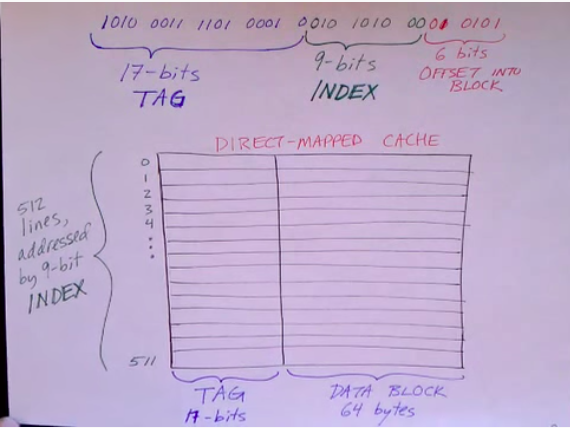 1010 0011 1101 0001 0010 1010 0000 0101
17-bits
TAG
9-bits
INDEX
6 bits
OFFSET INTO
BLOCK
DIRECT-MAPPED CACHE
512
lines,
addressed
by 9-bit
INDEX
0
1
2
3
4
511
TAG
17-bits
DATA BLOCK
64 bytes